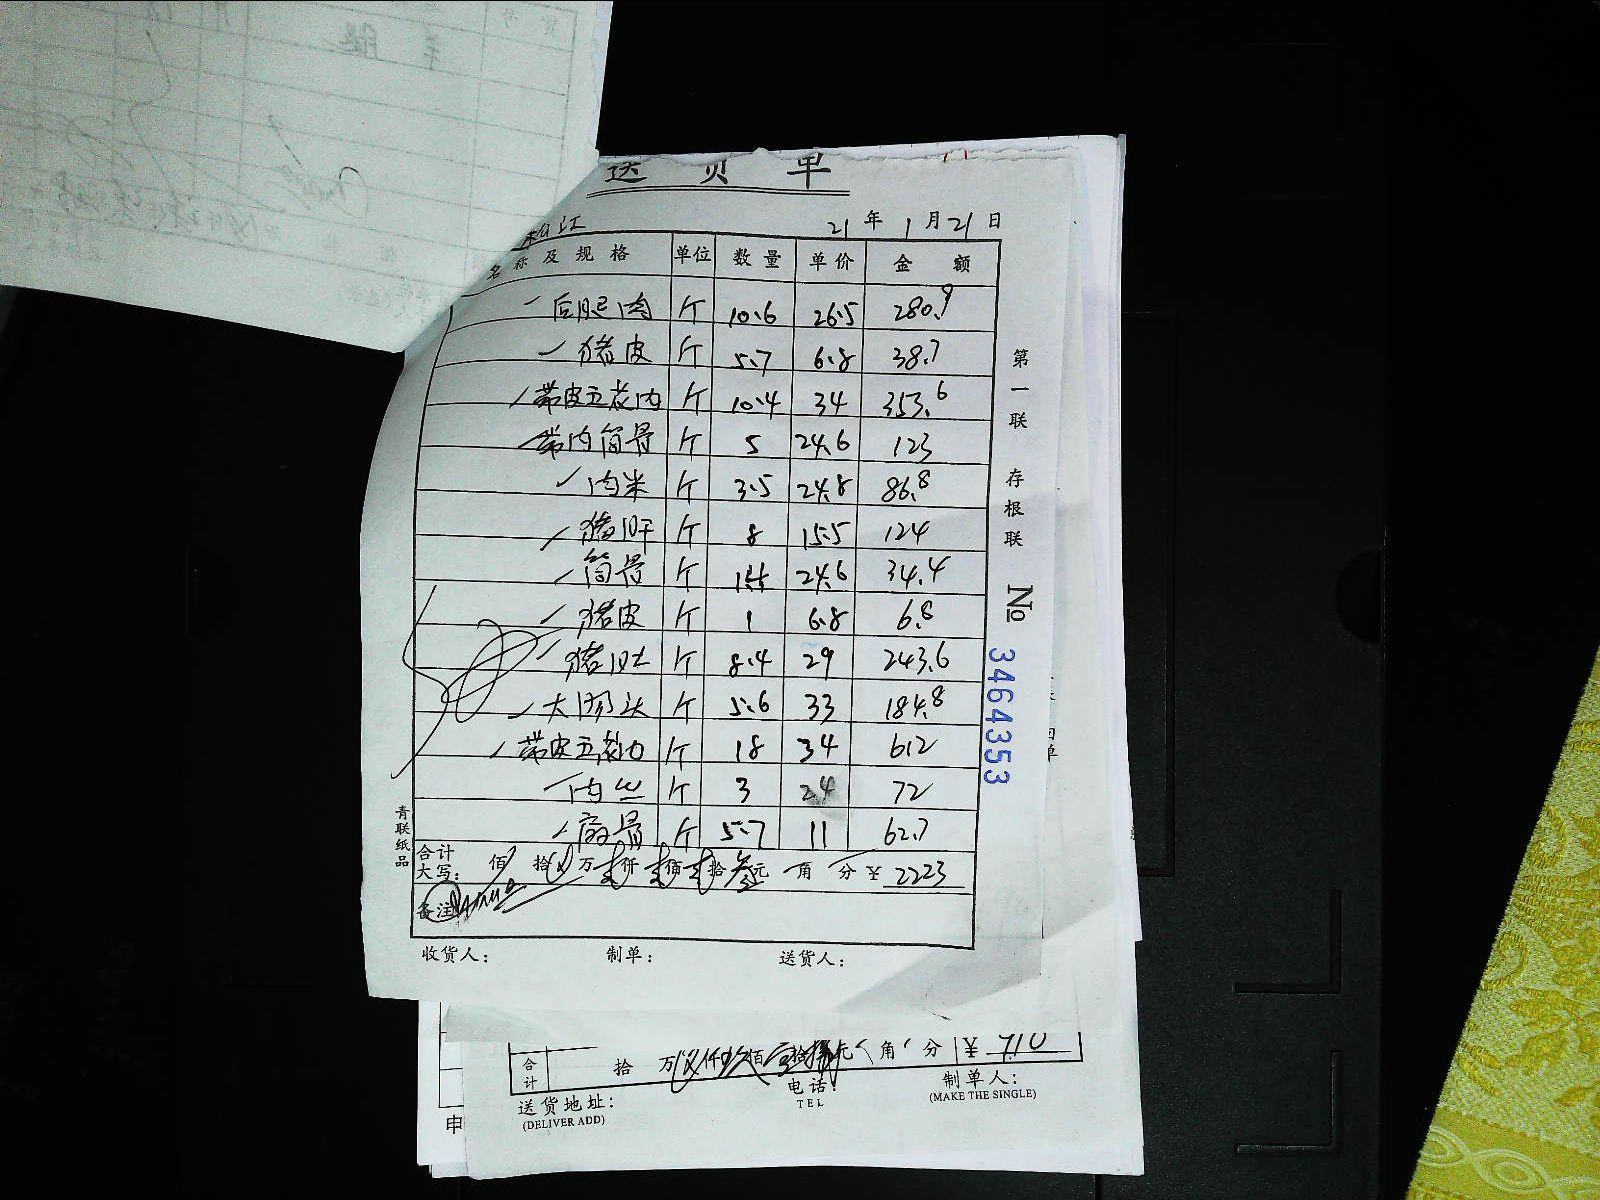 送货单
松江 21年1月21日
名称及规格 单位 数量 单价 金额
后腿肉 斤 10.6 26.5 280.9
猪皮 斤 5.7 6.8 38.7
带皮五花肉 斤 10.4 34 353.6
带肉筒骨 斤 5 24.6 123
肉米 斤 3.5 24.8 86.8
猪肝 斤 8 15.5 124
筒骨 斤 1.4 24.6 34.4
猪皮 斤 1 6.8 6.8
猪肚 斤 8.4 29 243.6
大肠头 斤 5.6 33 184.8
带皮五花肉 斤 18 34 612
肉丝 斤 3 24 72
扇骨 斤 5.7 11 62.7
合计
大写: 佰 拾 万 贰仟 贰佰 贰拾 叁元 角 分 ¥ 2223
备注
收货人: 制单: 送货人:
第一联 存根联 № 3464353
青联纸品
合计 拾 万 仟 佰 拾 元 角 分 ¥ 710
送货地址: 电话: 制单人:
(DELIVER ADD) TEL (MAKE THE SINGLE)
申